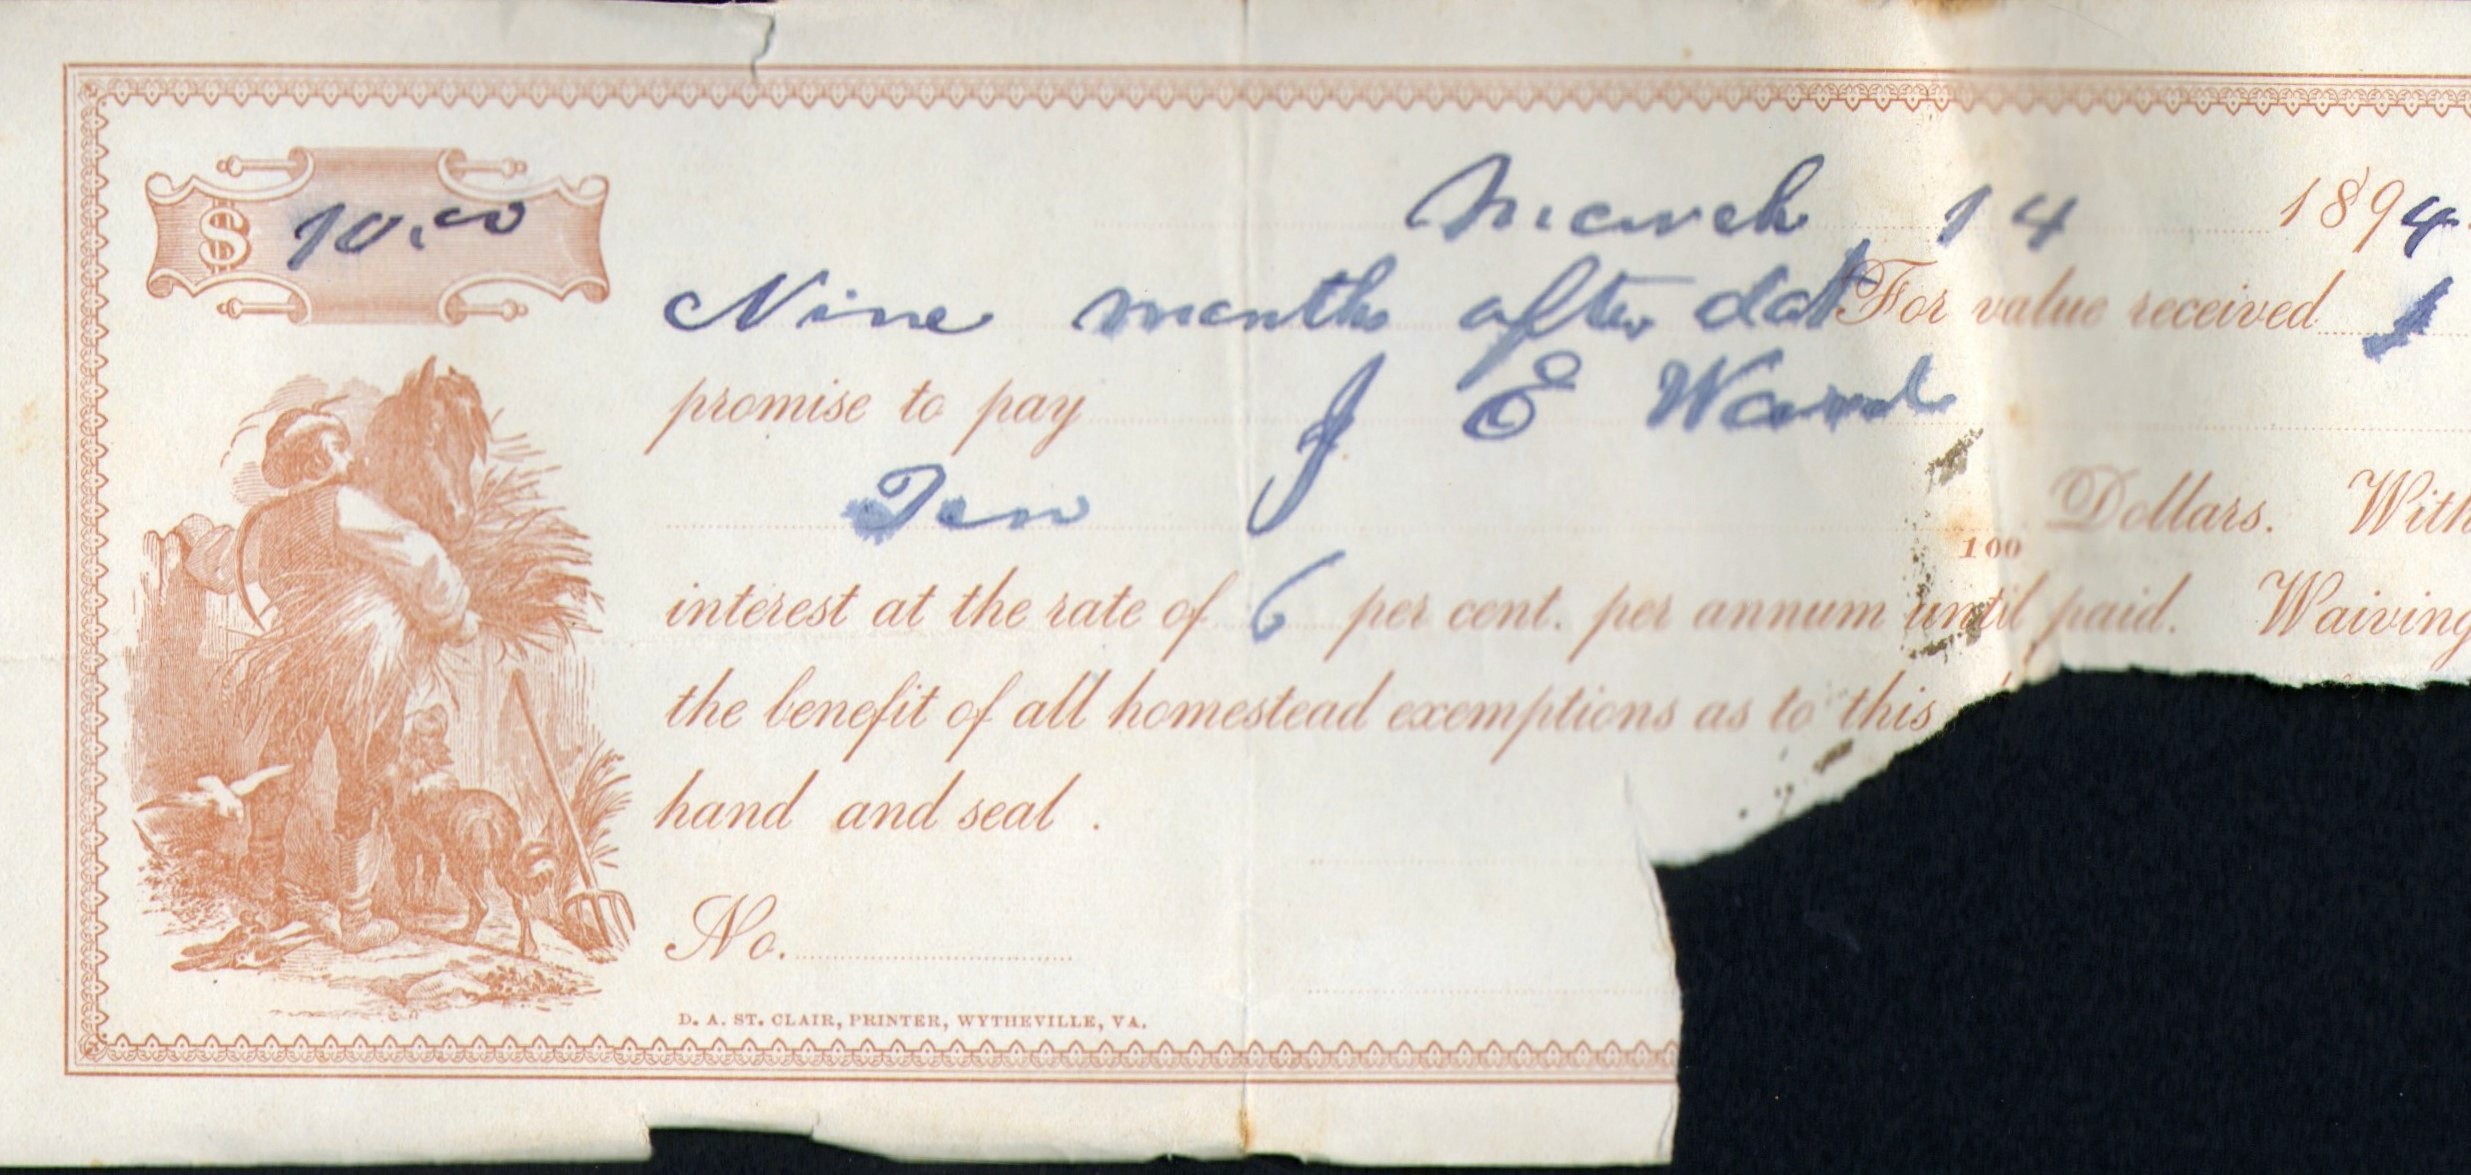 $ 10.00
March 14 1894.
Nine months after dat For value received I
promise to pay J E Ward
Ten 100 Dollars. With
interest at the rate of 6 per cent. per annum until paid. Waiving
the benefit of all homestead exemptions as to this
hand and seal .
No.
D. A. ST. CLAIR, PRINTER, WYTHEVILLE, VA.